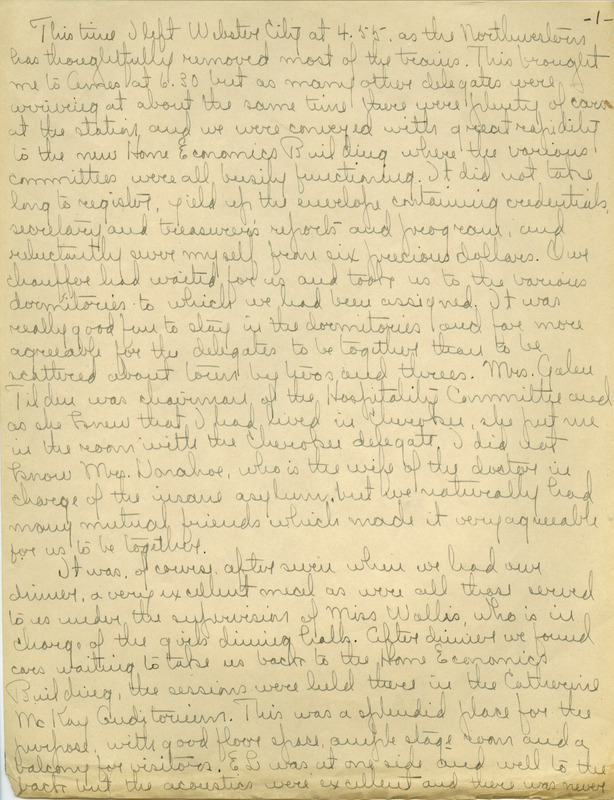 -1-
This time I left Webster City at 4.55. as the Northwestern
has thoughtfully removed most of the trains. This brought
me to Ames at 6.30 but as many other delegates were
arriving at about the same time there were plenty of cars
at the station and we were conveyed with great rapidity
to the new Home Economics Building where the various
committees were all busily functioning. It did not take
long to register, yield up the envelope containing credentials,
secretary and treasurer's reports and program, and
reluctantly sever myself from six precious dollars. Our
chauffer had waited for us and took us to the various
dormitories to which we had been assigned. It was
really good fun to stay in the dormitories and far more
agreeable for the delegates to be together than to be
scattered about town by twos and threes. Mrs. Galen
Tilden was chairman of the Hospitality Committee and
as she knew that I had lived in Cherokee, she put me
in the room with the Cherokee delegate. I did not
know Mrs. Donahoe, who is the wife of the doctor in
charge of the insane asylum, but we naturally had
many mutual friends which made it very agreeable
for us to be together.
It was, of course, after seven when we had our
dinner, a very excellent meal as were all those served
to us under the supervision of Miss Wallis, who is in
charge of the girls dining halls. After dinner we found
cars waiting to take us back to the Home Economics
Building, the sessions were held there in the Catherine
McKay Auditorium. This was a splendid place for the
purpose, with good floor space, ample stage room and a
balcony for visitors. E S was at one side and well to the
back but the acoustics were excellent and there was never